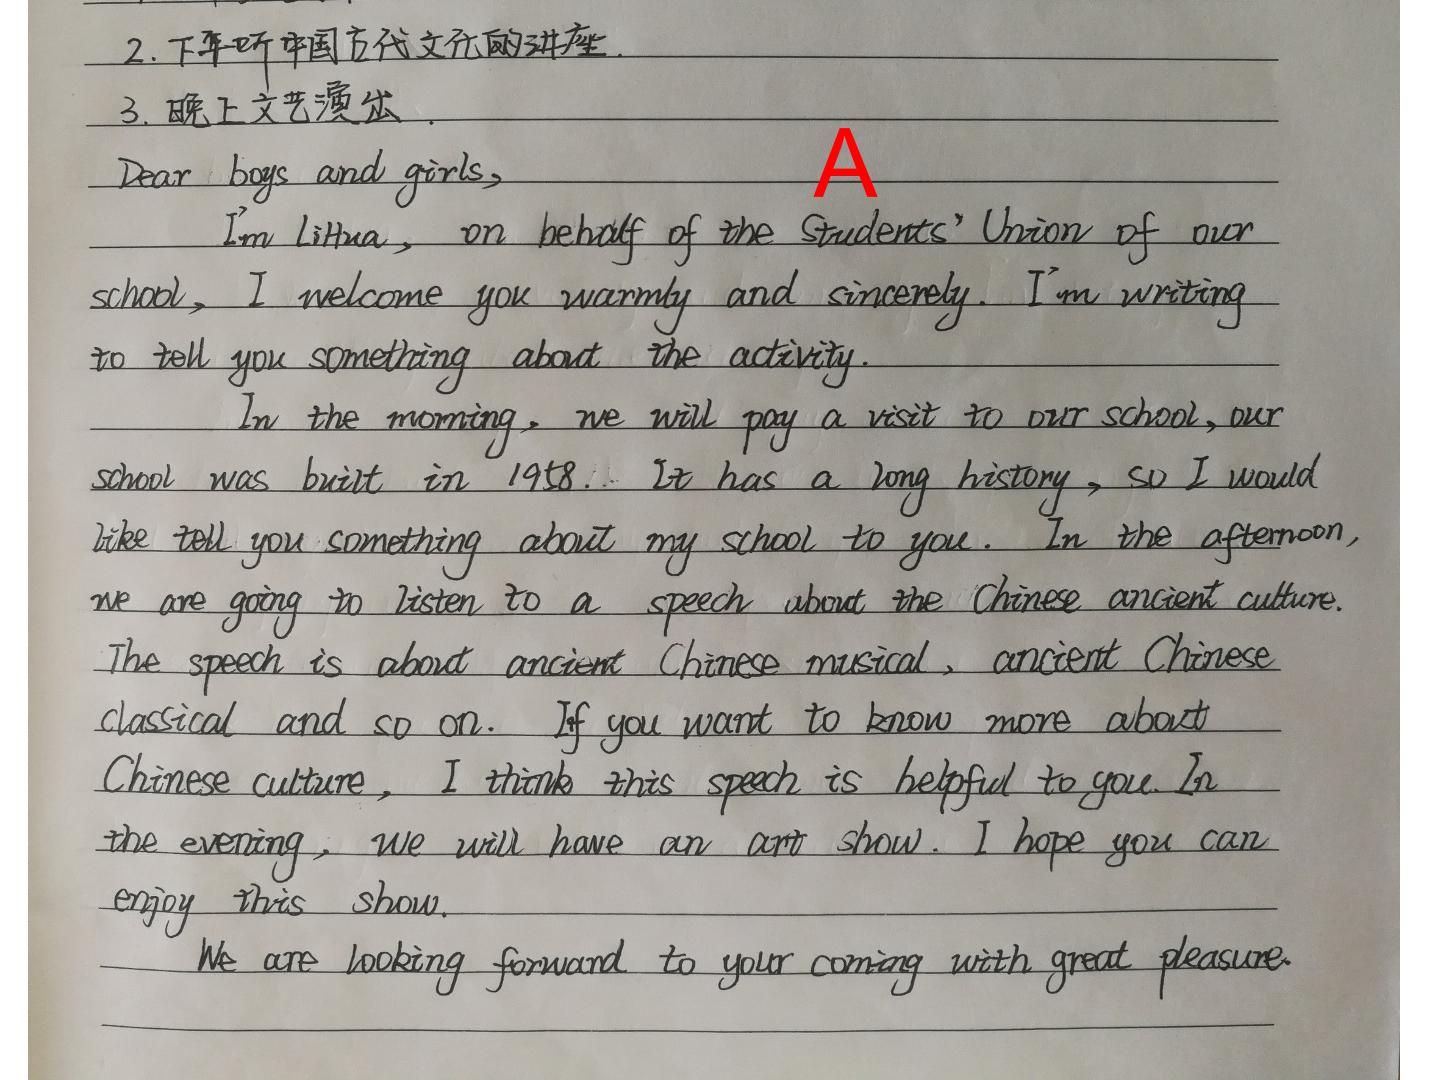 2. 下午听中国古代文化的讲座.
3. 晚上文艺演出.
A
Dear boys and girls,
I'm LiHua, on behalf of the Students' Union of our
school, I welcome you warmly and sincerely. I'm writing
to tell you something about the activity.
In the morning, we will pay a visit to our school, our
school was built in 1958. It has a long history, so I would
like tell you something about my school to you. In the afternoon,
we are going to listen to a speech about the Chinese ancient culture.
The speech is about ancient Chinese musical, ancient Chinese
classical and so on. If you want to know more about
Chinese culture, I think this speech is helpful to you. In
the evening, we will have an art show. I hope you can
enjoy this show.
We are looking forward to your coming with great pleasure.